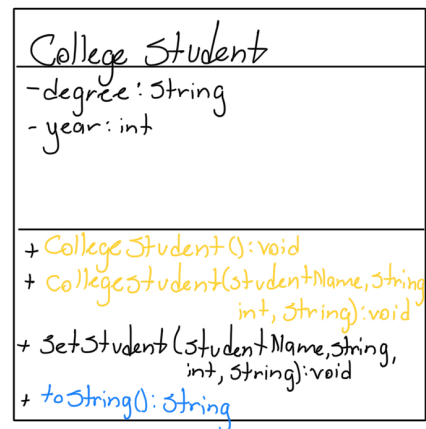 College Student
-degree: String
- year: int
+ CollegeStudent(): void
+ CollegeStudent(studentName, string
int, string): void
+ setStudent(studentName, string,
int, string): void
+ toString(): string